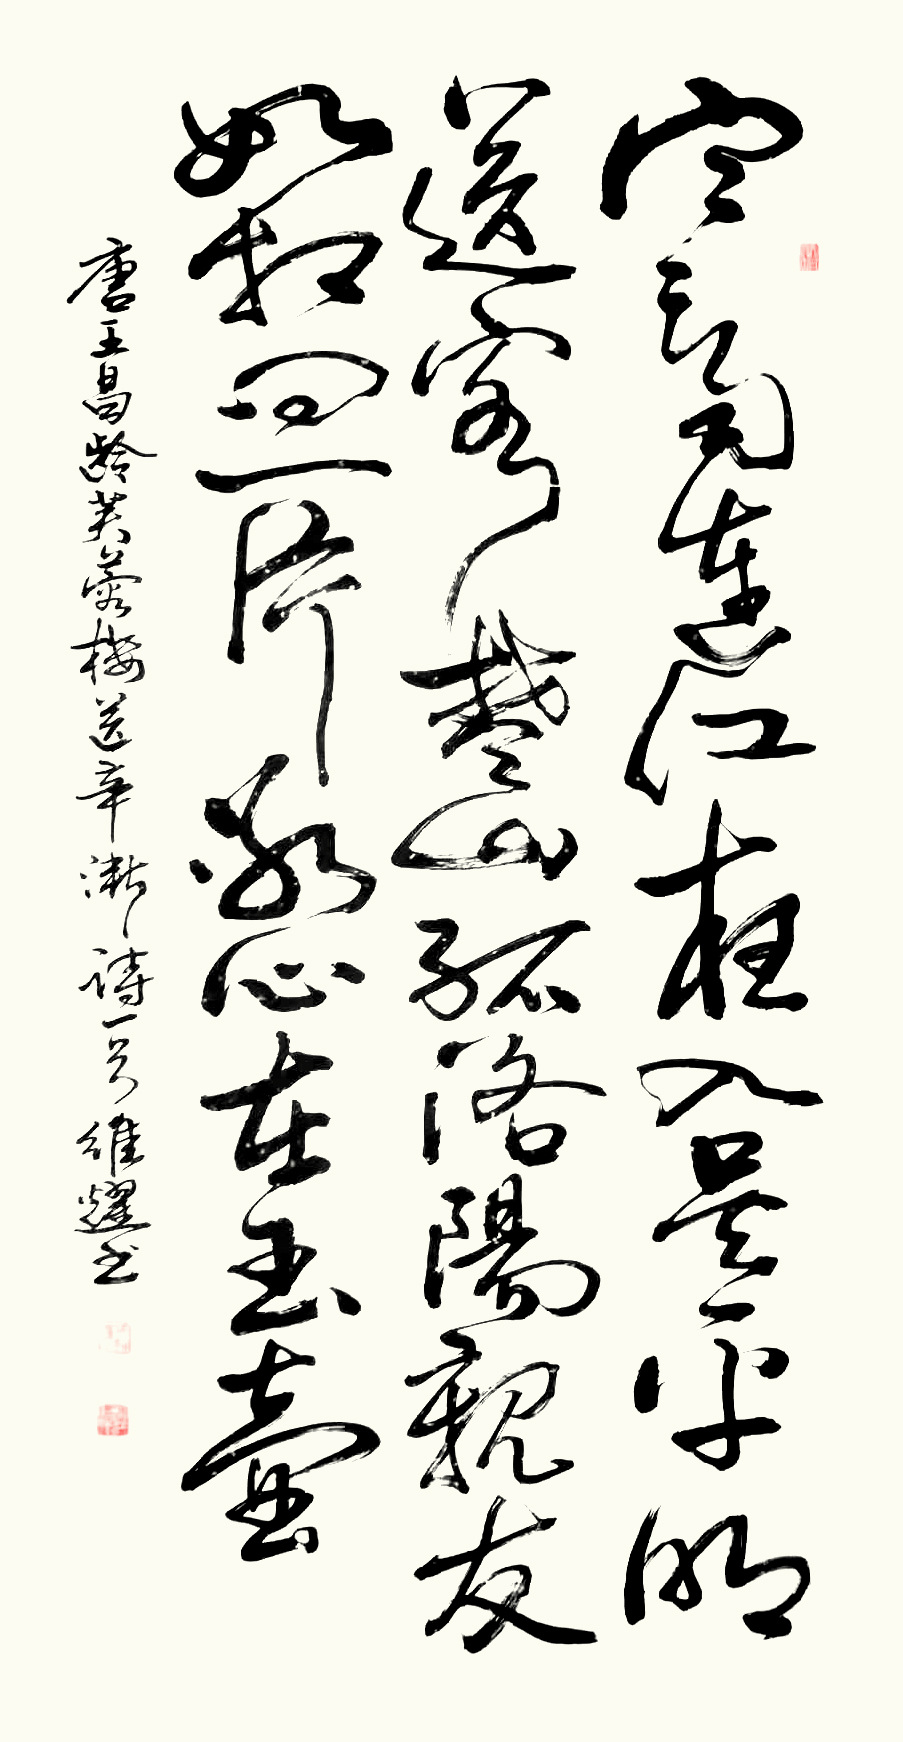 寒雨連江夜入吳平明
送客楚山孤洛陽親友
如相問一片冰心在玉壺
唐王昌齡芙蓉樓送辛漸之詩一首維耀書